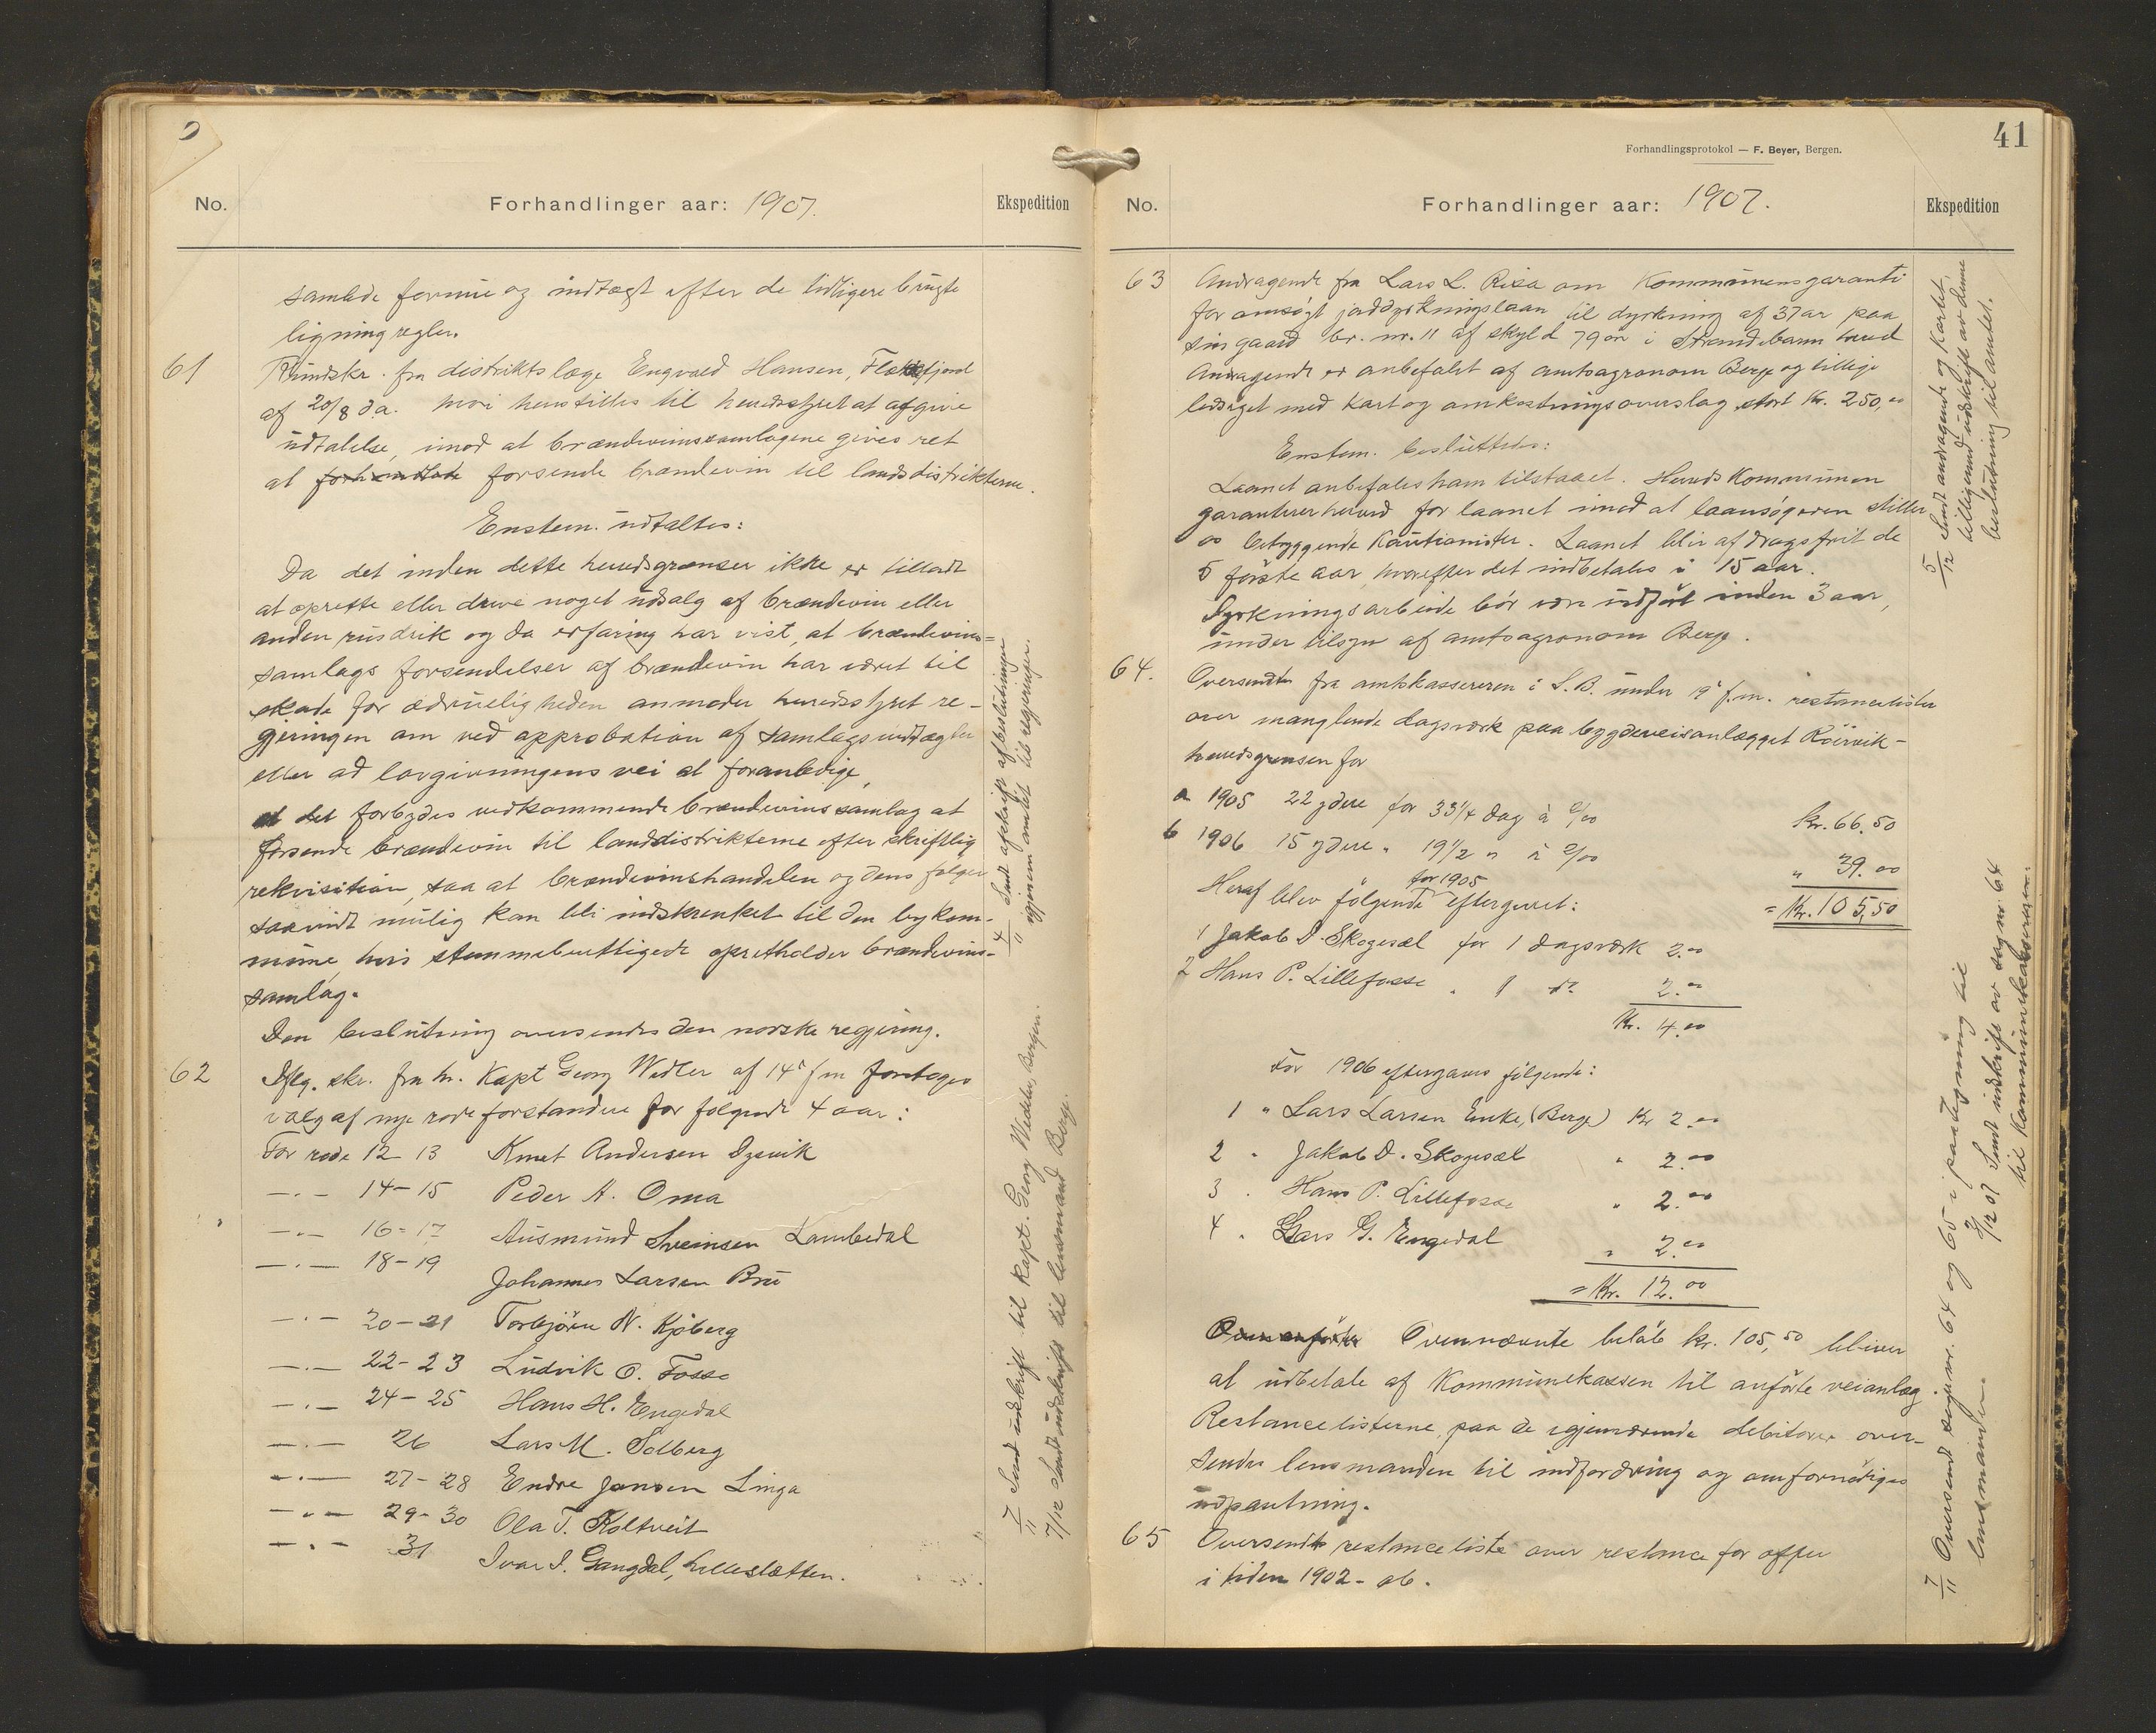 No.
Forhandlinger aar: 1907.
Ekspedition
samlede formue og indtægt efter de tidligere brugte
ligningregler.
61
Rundskr. fra distriktslæge Engvald Hansen, Flekkefjord
af 20/8 d.a. hvori henstilles til herredsstyret at afgive
udtalelse, imod at brændevinssamlagene gives ret
at forhandlede forsende brændevin til landsdistrikterne.
Enstem. udtaltes:
Da det inden dette herredsgrænser ikke er tilladt
at oprette eller drive noget udsalg af brændevin eller
anden rusdrik og da erfaring har vist, at brændevins=
samlags forsendelser af brændevin har været til
skade for ædrueligheden anmoder herredsstyret re-
gjeringen om ved approbation af samlagsindtægter
eller ad lovgivningens vei at foranledige,
at det forbydes vedkommende brændevinssamlag at
forsende brændevin til landdistrikterne efter skriftlig
rekvisition, saa at brændevinshandelen og dens følger
saavidt mulig kan bli indskrenket til den bykom-
mune, hvis stemmeberettigede opretholder brændevins-
samlag.
Den beslutning oversendes den norske regjering.
4/11 Sendt afskrift af beslutningen
igjennem amtet til regjeringen.
62
Iflg. skr. fra hr. Kapt Georg Wedler af 14' f.m. foretoges
valg af nye rodeforstandere for følgende 4 aar:
For rode 12-13 Knut Andersen Dysvik
—.— 14-15 Peder A. Oma
—.— 16-17 Ausmund Sveinsen Kambedal
—.— 18-19 Johannes Larsen Bru
—.— 20-21 Torbjörn N. Kjöberg
—.— 22-23 Ludvik O. Fosse
—.— 24-25 Hans H. Engedal
—.— 26 Lars M. Solberg
—.— 27-28 Endre Jansen Linga
—.— 29-30 Ola T. Koltveit
—.— 31 Ivar I. Gangdal, Lilleslætten.
7/11 Sendt udskrift til kapt. Georg Wedeler, Bergen.
7/12 Sendt udskrift til lensmand Berge.
41
Forhandlingsprotokol — F. Beyer, Bergen.
No.
Forhandlinger aar: 1907.
Ekspedition
63
Andragende fra Lars L. Risa om Kommunens garanti
for ansøgt jorddyrkningslaan til dyrkning af 37 ar paa
sin gaard br. nr. 11 af skyld 79 øre i Strandebarm herred
Andragende er anbefalet af amtsagronom Berge og tillige
ledsaget med kart og omkostningsoverslag stort Kr. 250,00
Enstem. besluttedes:
Laanet anbefales ham tilstaaet. Herredskommunen
garanterer herved for laanet imod at laansøgeren stiller
os betryggende kautionister. Laanet blir afdragsfrit de
5 første aar, hvorefter det indbetales i 15 aar.
Dyrkningsarbeide bör være udfört inden 3 aar,
under tilsyn af amtsagronom Berge.
5/12 Sendt andragende og kartet
tilligemed udskrift av denne
beslutning til amtet.
64.
Oversendte fra amtskassereren i S.B. under 19' f.m. restancelister
over manglende dagsverk paa bygdeveisanlægget Röirvik-
herredsgrensen for
a 1905 22 ydere for 33 1/4 dag à 2/00 Kr. 66.50
b 1906 15 ydere " 19 1/2 " à 2/00 " 39.00
= Kr. 105,50
Heraf blev følgende for 1905 eftergivet:
1 Jakob D. Skogesæl for 1 dagsværk 2.00
2 Hans P. Lillefosse " 1 do 2.00
Kr. 4.00
For 1906 eftergaves følgende:
1 " Lars Larsen Enke, (Berge) Kr 2.00
2 " Jakob D. Skogesæl " 2.00
3 " Hans P. Lillefosse " 2.00
4 " Lars G. Engedal " 2.00
= Kr. 12.00
Ovenanförte Ovennævnte beløb kr. 105,50 bliver
at udbetale af Kommunekassen til anförte veianlæg.
Restancelisterne paa de igjenværende debitorer over-
sendes lensmanden til indfordring og omfornødiges
udpantning.
65
Oversendt restanceliste over restance for offer
i tiden 1902-06.
7/11 Oversendt sag nr. 64 og 65 i paategning til
lensmanden.
3/12 07 Sendt udskrift av sag nr. 64
til kommunekassereren.